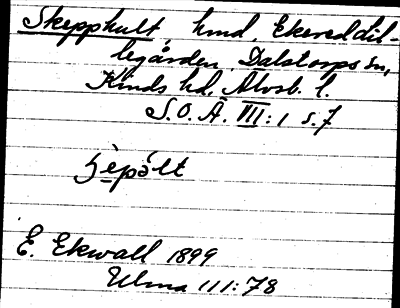 Skepphult, hmd. Ekered lil-
legården, Dalstorps sn,
Kinds hd, Älvsb. l.
S.O.Ä. III:1 s.7
ʃèpə́lt
E. Ekwall 1899
Ulma 111:78